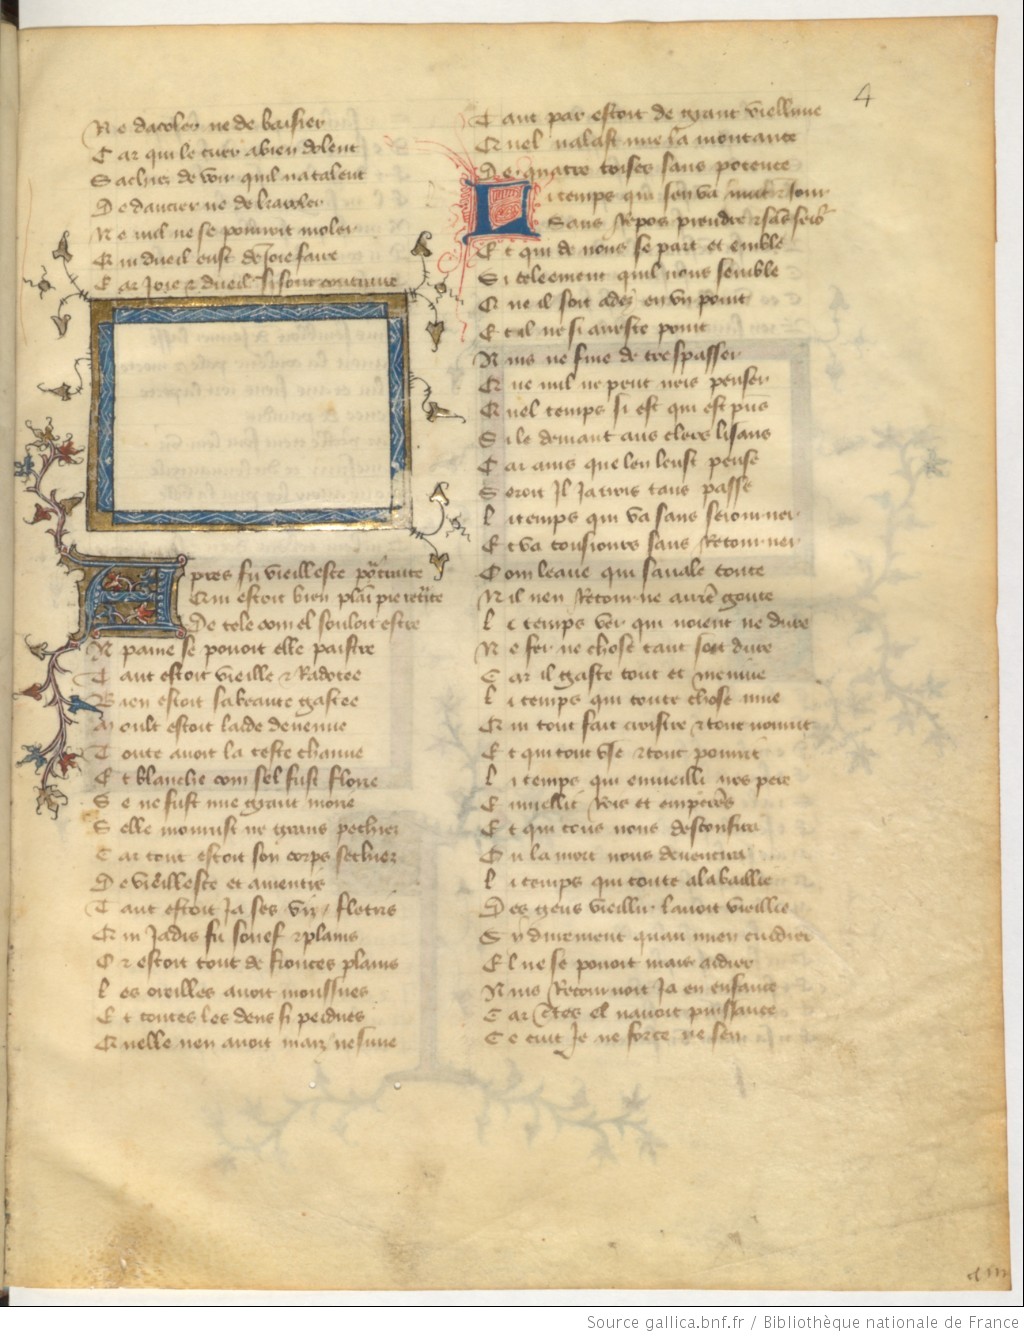 4
Ne dacoler ne de baisier
Car qui le cuer a bien dolent
Sachiez de voir quil na talent
De dancier ne de karoler
Ne nul ne se pourroit moler
Qui dueil eust de joie faire
Car joie & dueil si sont contraire
Apres fu vieillesce portraite
Qui estoit bien plain pie retraite
De tele com el souloit estre
A paine se pouoit elle paistre
Tant estoit vieille & Radotee
Bien estoit sa biaute gastee
Moult estoit laide deuenue
Toute auoit la teste chanue
Et blanche com sel fust florie
Se ne fust mie grant morie
Selle mourust ne grans pechiez
Car tout estoit son corps sechiez
De vieillesce et anientis
Tant estoit ja ses vis fletris
Qui jadis fu souef & plains
Or estoit tout de fronces plains
Les oreilles auoit moussues
Et toutes les dens si perdues
Quelle nen auoit maiz nesune
Tant par estoit de grant viellune
Quel nalast mie la montance
De quatre toises sans potence
Li temps qui sen va nuit & jour
Sans Repos prendre & sans seior
Et qui de nous se part et emble
Si teleement quil nous semble
Que il soit adez en vn point
Et il ne si arreste point
Ains ne fine de trespasser
Que nul ne peut neis penser
Quel temps si est qui est presens
Si le demant aus clers lisans
Car ains que len leust pense
Seroit il ja trois tans passe
Li temps qui va sans seiourner
Et va tousiours sans Retourner
Com leaue qui sauale toute
Nil nen Retourne arriere goute
Li temps vers qui noient ne dure
Ne fer ne chose tant soit dure
Car il gaste tout et meniue
Li temps qui toute chose mue
Qui tout fait croistre & tout nourrit
Et qui tout vse & tout pourrit
Li temps qui enuielli nos peres
Enuiellit Rois et empereres
Et qui tous nous desconfira
Ou la mort nous deuencira
Li temps qui toute a la baillie
Des gens vieillir lauoit vieillie
Si durement quau mien cuidier
El ne se pouoit mais aidier
Ains Retournoit ja en enfance
Car certes el nauoit puissance
Ce cuit je ne force ne sen
Source gallica.bnf.fr / Bibliothèque nationale de France